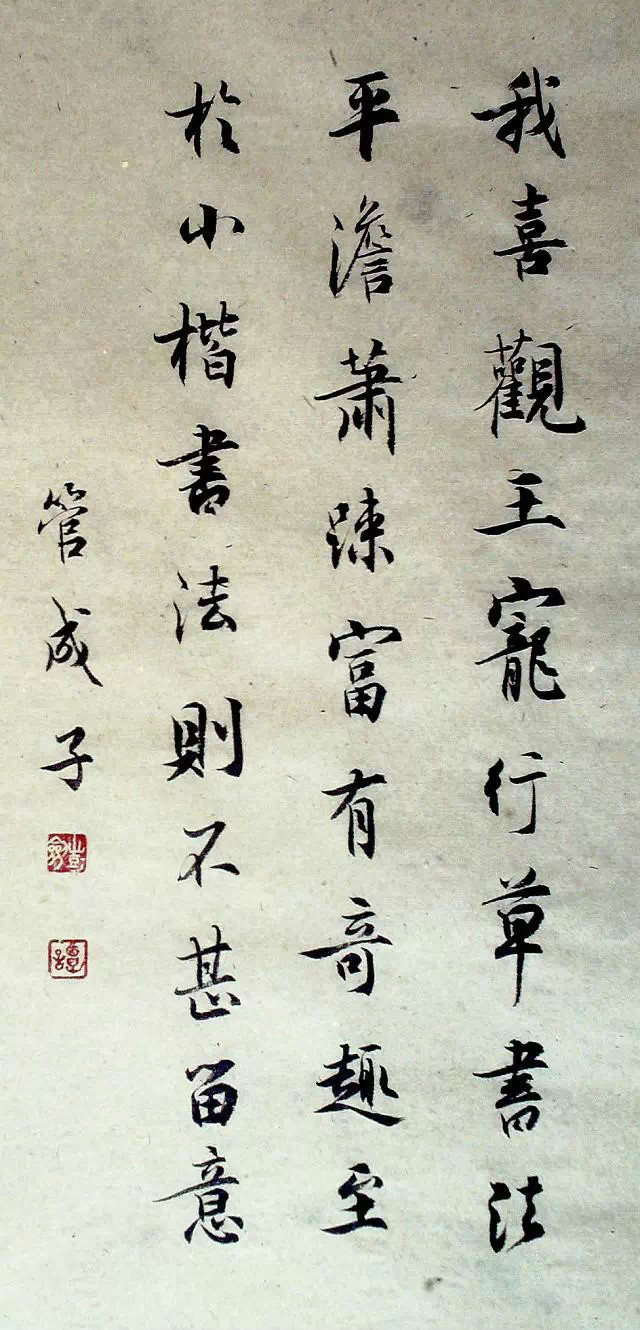 我喜觀王寵行草書法
平澹蕭疎富有奇趣至
於小楷書法則不甚留意
管成子